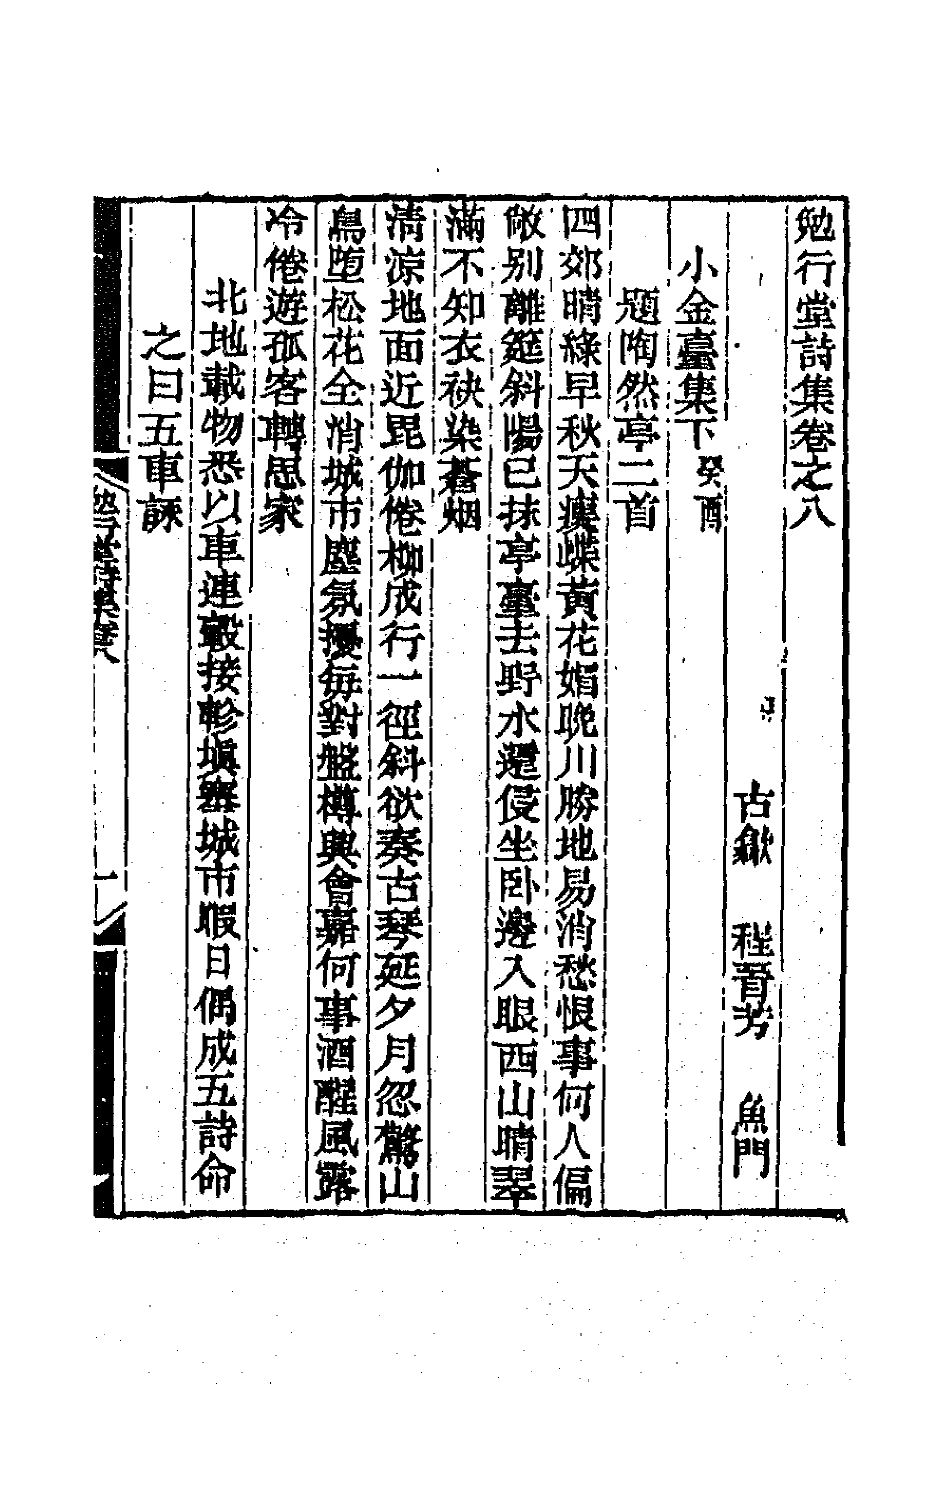 勉行堂詩集卷之八
古歙 程晉芳 魚門
小金臺集下癸酉
題陶然亭二首
四郊晴綠早秋天瘦蝶黃花媚晚川勝地易消愁恨事何人偏
敞別離筵斜陽已抹亭臺去野水還侵坐臥邊入眼西山晴翠
滿不知衣袂染蒼烟
清涼地面近毘伽倦柳成行一徑斜欲奏古琴延夕月忽驚山
鳥墮松花全消城市塵氛擾每對盤樽興會嘉何事酒醒風露
冷倦遊孤客轉思家
北地載物悉以車連轂接軫塡塞城市暇日偶成五詩命
之曰五車詠
勉行堂詩集卷八
一